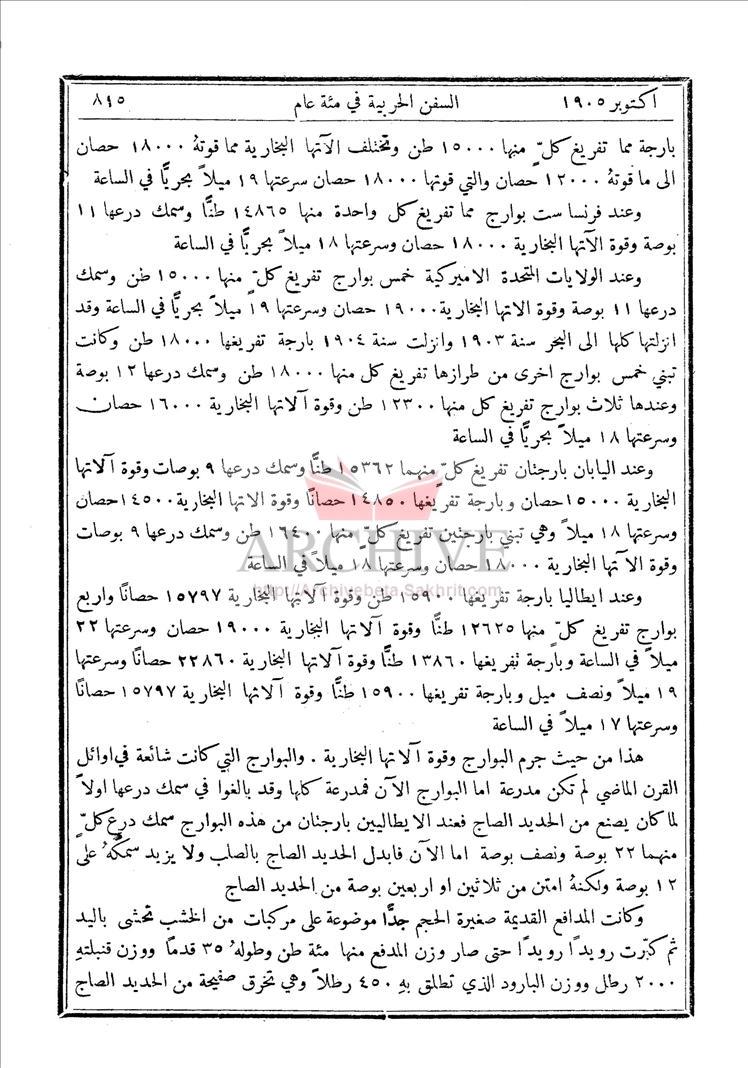 اكتوبر ١٩٠٥ السفن الحربية في مئة عام ٨٤٥
بارجة مما تفريغ كلٍّ منها ١٥٠٠٠ طن وتختلف الآتها البخارية مما قوتهُ ١٨٠٠٠ حصان
الى ما قوتهُ ١٢٠٠٠ حصان والتي قوتها ١٨٠٠٠ حصان سرعتها ١٩ ميلاً بحريًّا في الساعة
وعند فرنسا ست بوارج مما تفريغ كل واحدة منها ١٤٨٦٥ طنًّا وسمك درعها ١١
بوصة وقوة الآتها البخارية ١٨٠٠٠ حصان وسرعتها ١٨ ميلاً بحريًّا في الساعة
وعند الولايات المتحدة الاميركية خمس بوارج تفريغ كلٍّ منها ١٥٠٠٠ طن وسمك
درعها ١١ بوصة وقوة الاتها البخارية ١٩٠٠٠ حصان وسرعتها ١٩ ميلاً بحريًّا في الساعة وقد
انزلتها كلها الى البحر سنة ١٩٠٣ وانزلت سنة ١٩٠٤ بارجة تفريغها ١٨٠٠٠ طن وكانت
تبني خمس بوارج اخرى من طرازها تفريغ كل منها ١٨٠٠٠ طن وسمك درعها ١٢ بوصة
وعندها ثلاث بوارج تفريغ كل منها ١٢٣٠٠ طن وقوة آلاتها البخارية ١٦٠٠٠ حصان
وسرعتها ١٨ ميلاً بحريًّا في الساعة
وعند اليابان بارجتان تفريغ كلٍّ منهما ١٥٣٦٢ طنًّا وسمك درعها ٩ بوصات وقوة آلاتها
البخارية ١٥٠٠٠ حصان وبارجة تفريغها ١٤٨٥٠ حصانًا وقوة الاتها البخارية ١٤٥٠٠ حصان
وسرعتها ١٨ ميلاً وهي تبني بارجتين تفريغ كلٍّ منها ١٦٤٠٠ طن وسمك درعها ٩ بوصات
وقوة الآتها البخارية ١٨٠٠٠ حصان وسرعتها ١٨ ميلاً في الساعة
ARCHIVE
http://Archivebeta.Sakhrit.com
وعند ايطاليا بارجة تفريغها ١٥٩٠٠ طن وقوة آلاتها البخارية ١٥٧٩٧ حصانًا واربع
بوارج تفريغ كلٍّ منها ١٢٦٢٥ طنًّا وقوة آلاتها البخارية ١٩٠٠٠ حصان وسرعتها ٢٢
ميلاً في الساعة وبارجة تفريغها ١٣٨٦٠ طنًّا وقوة آلاتها البخارية ٢٢٨٦٠ حصانًا وسرعتها
١٩ ميلاً ونصف ميل وبارجة تفريغها ١٥٩٠٠ طنًّا وقوة آلاتها البخارية ١٥٧٩٧ حصانًا
وسرعتها ١٧ ميلاً في الساعة
هذا من حيث جرم البوارج وقوة آلاتها البخارية . والبوارج التي كانت شائعة في اوائل
القرن الماضي لم تكن مدرعة اما البوارج الآن فمدرعة كلها وقد بالغوا في سمك درعها اولاً
لما كان يصنع من الحديد الصاج فعند الايطاليين بارجتان من هذه البوارج سمك درع كلٍّ
منهما ٢٢ بوصة ونصف بوصة اما الآن فابدل الحديد الصاج بالصلب ولا يزيد سمكهُ على
١٢ بوصة ولكنهُ امتن من ثلاثين او اربعين بوصة من الحديد الصاج
وكانت المدافع القديمة صغيرة الحجم جدًّا موضوعة على مركبات من الخشب تحشى باليد
ثم كبّرت رويدًا رويدًا حتى صار وزن المدفع منها مئة طن وطولهُ ٣٥ قدمًا ووزن قنبلتهِ
٢٠٠٠ رطل ووزن البارود الذي تطلق بهِ ٤٥٠ رطلاً وهي تخرق صفيحة من الحديد الصاج